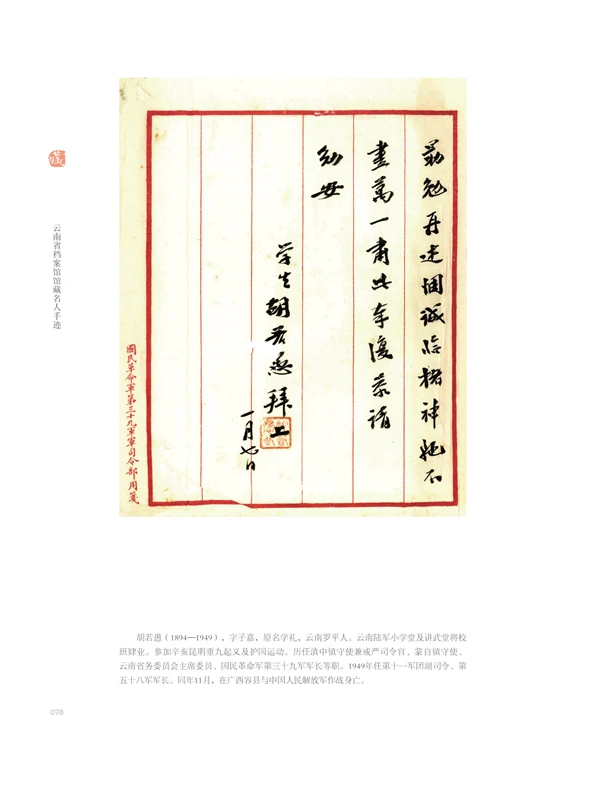 藏
云南省档案馆馆藏名人手迹
勗勉再述悃誠臨楮神馳不
盡萬一肅此奉復恭請
勛安
学生胡若愚拜上
一月七日
國民革命軍第三十九軍軍司令部用箋
胡若愚（1894—1949），字子嘉，原名学礼，云南罗平人。云南陆军小学堂及讲武堂将校
班肄业。参加辛亥昆明重九起义及护国运动。历任滇中镇守使兼戒严司令官、蒙自镇守使、
云南省务委员会主席委员、国民革命军第三十九军军长等职。1949年任第十一军团副司令、第
五十八军军长。同年11月，在广西容县与中国人民解放军作战身亡。
078